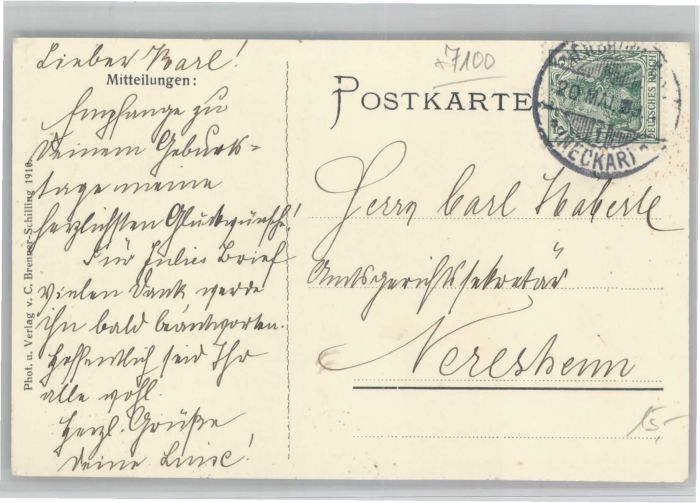 Lieber Karl!
Mitteilungen:
Empfange zu
Deinem Geburts-
tage meine
herzlichsten Glückwünsche!
Für Julies Brief
vielen Dank werde
ihn bald beantworten.
Hoffentlich seid Ihr
alle wohl.
Herzl. Grüße
Deine Luise!
Phot. u. Verlag v. C. Brenner-Schilling 1910.
7100
POSTKARTE
DEUTSCHES REICH
20 MAI
(NECKAR)
Herrn Carl Haberle
Amtsgerichtssekretär
Neresheim
15,-